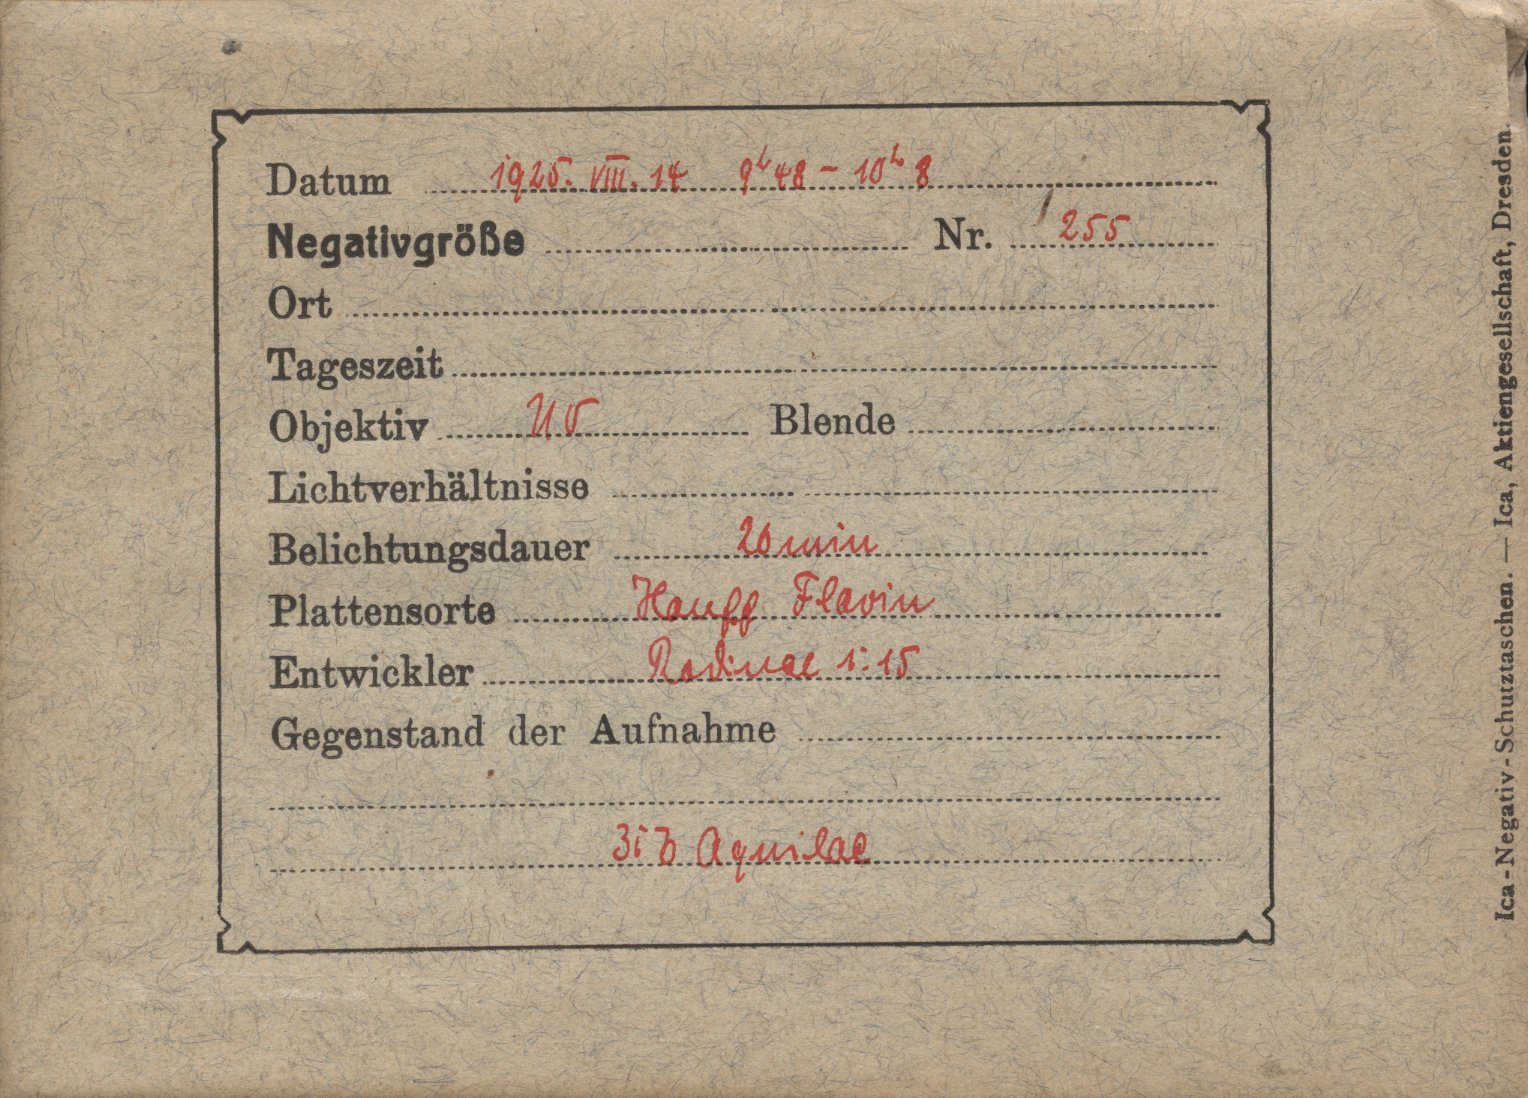 Datum 1925. VIII. 14 9h 48 – 10h 8
Negativgröße Nr. 255
Ort
Tageszeit
Objektiv UV Blende
Lichtverhältnisse
Belichtungsdauer 20 min
Plattensorte Hauff Flavin
Entwickler Rodinal 1:15
Gegenstand der Aufnahme
Aquilae
Ica-Negativ-Schutztaschen. — Ica, Aktiengesellschaft, Dresden.